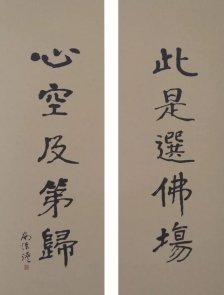 此是選佛場
心空及第歸